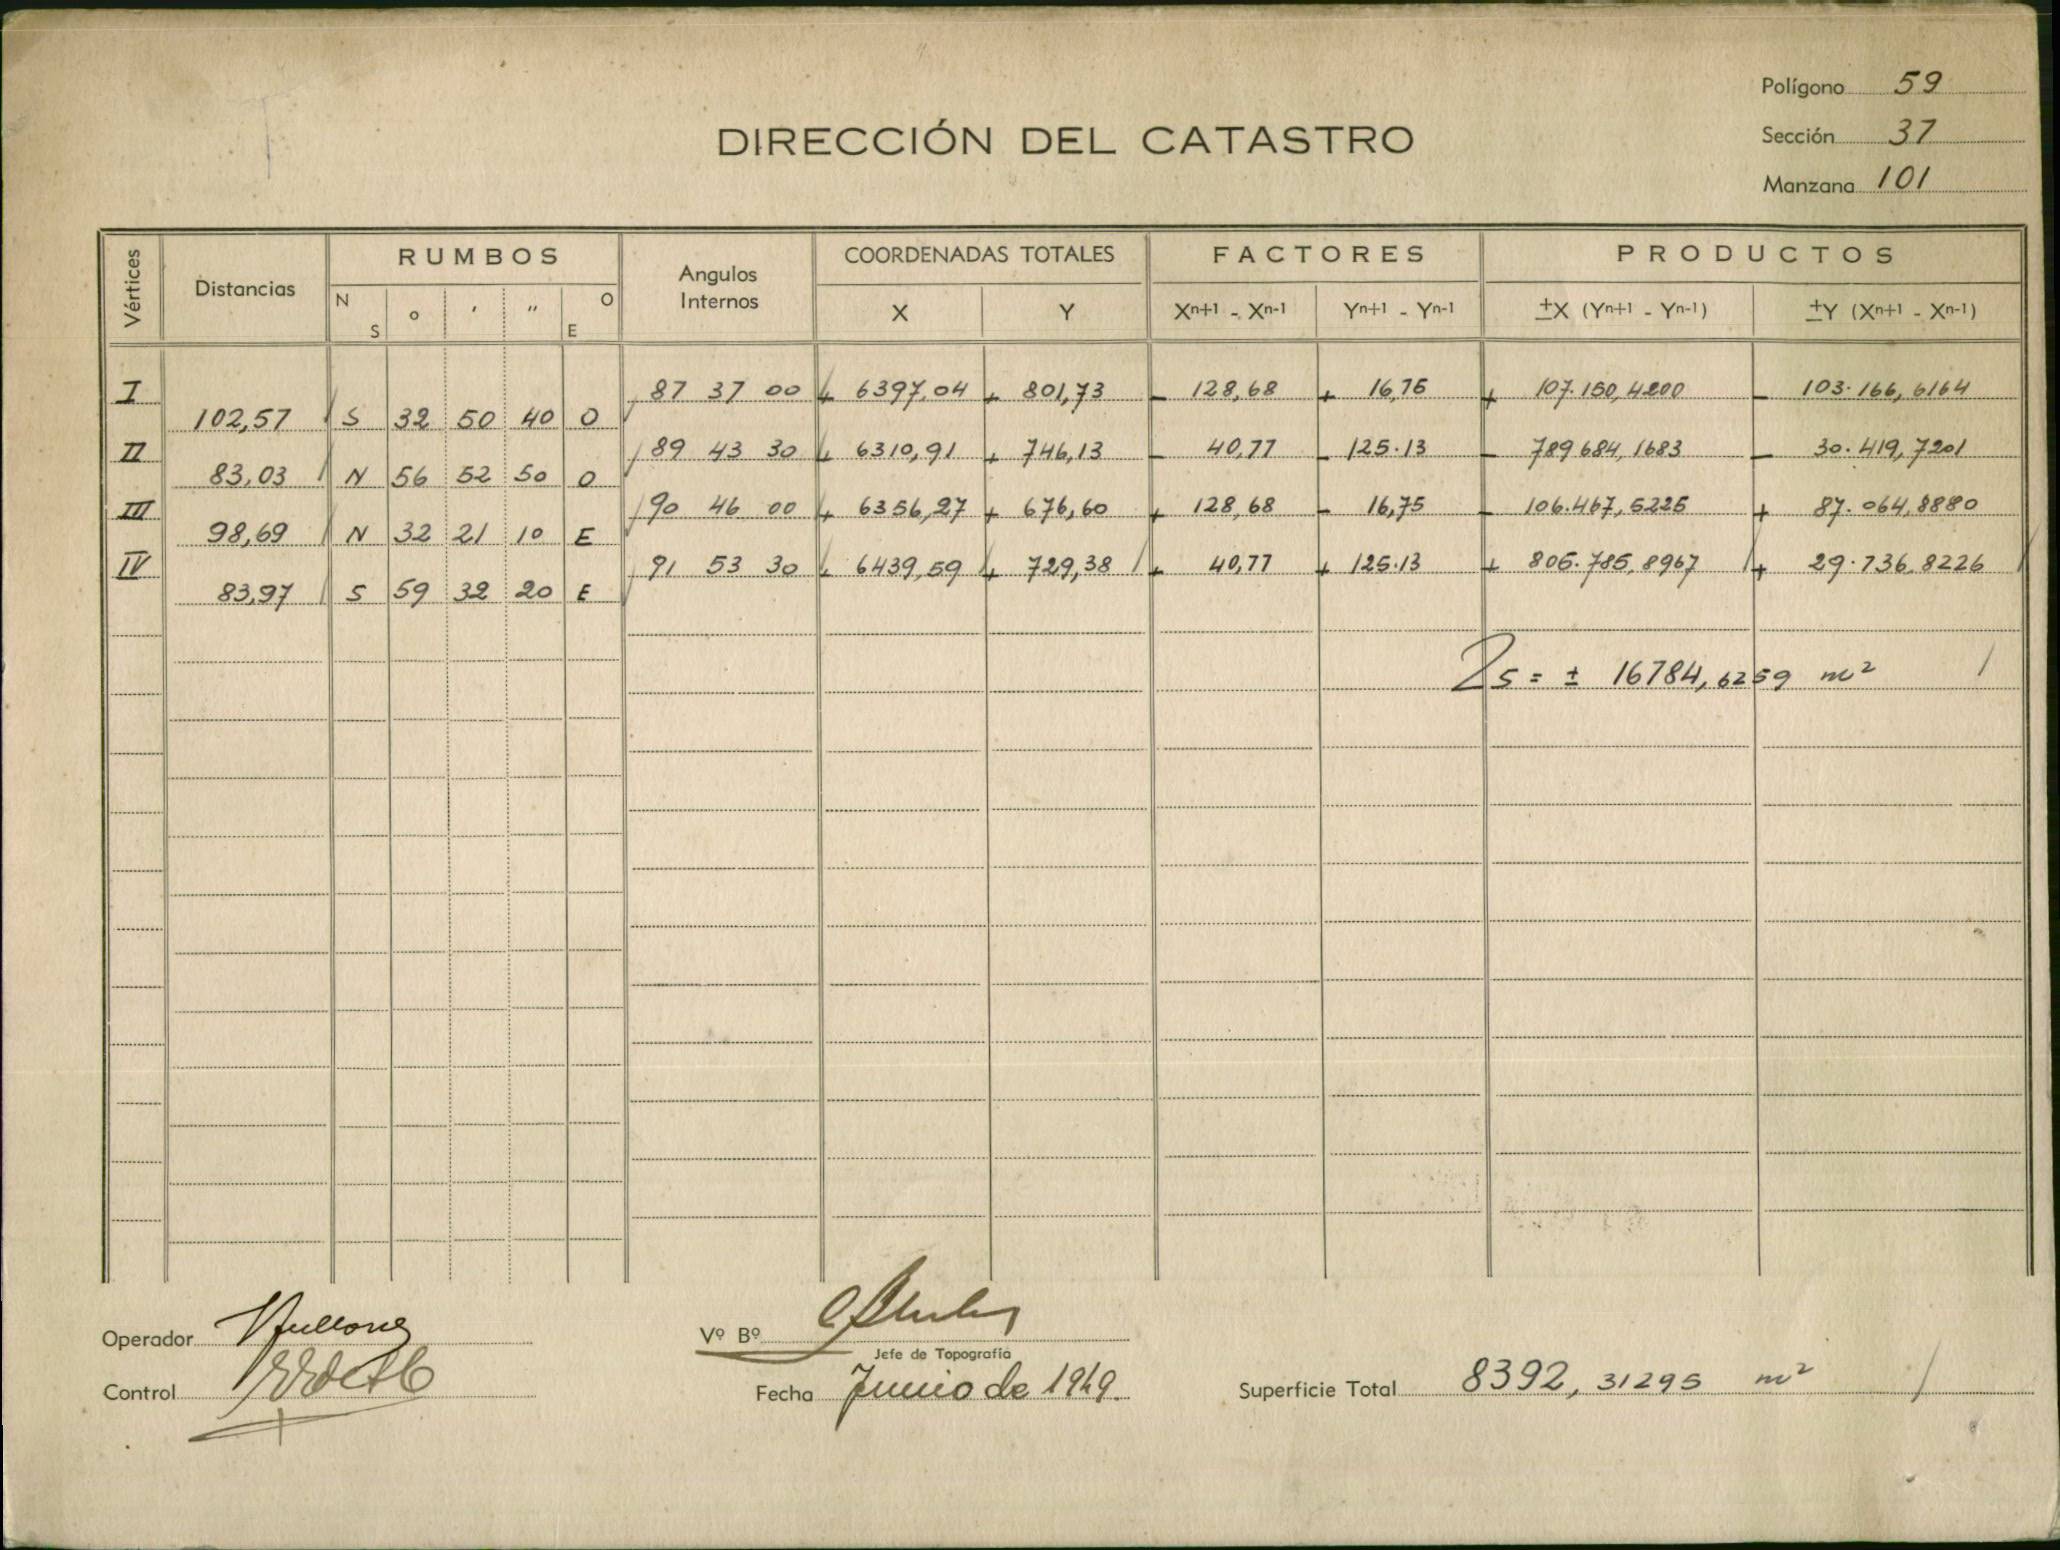 Polígono 59
DIRECCIÓN DEL CATASTRO
Sección 37
Manzana 101
Vértices Distancias RUMBOS Angulos Internos COORDENADAS TOTALES FACTORES PRODUCTOS
N S o ' " O E X Y Xn+1 - Xn-1 Yn+1 - Yn-1 ±X (Yn+1 - Yn-1) ±Y (Xn+1 - Xn-1)
I 87 37 00 + 6397,04 + 801,73 - 128,68 + 16,75 + 107.150,4200 - 103.166,6164
102,57 S 32 50 40 O
II 89 43 30 + 6310,91 + 746,13 - 40,77 - 125.13 - 789684,1683 - 30.419,7201
83,03 N 56 52 50 O
III 90 46 00 + 6356,27 + 676,60 + 128,68 - 16,75 - 106.467,5225 + 87.064,8880
98,69 N 32 21 10 E
IV 91 53 30 + 6439,59 + 729,38 + 40,77 + 125.13 + 805.785,8967 + 29.736,8226
83,97 S 59 32 20 E
2s = ± 16784,6259 m²
Operador
Vº Bº
Jefe de Topografía
Control
Fecha Junio de 1949.
Superficie Total 8392,31295 m²